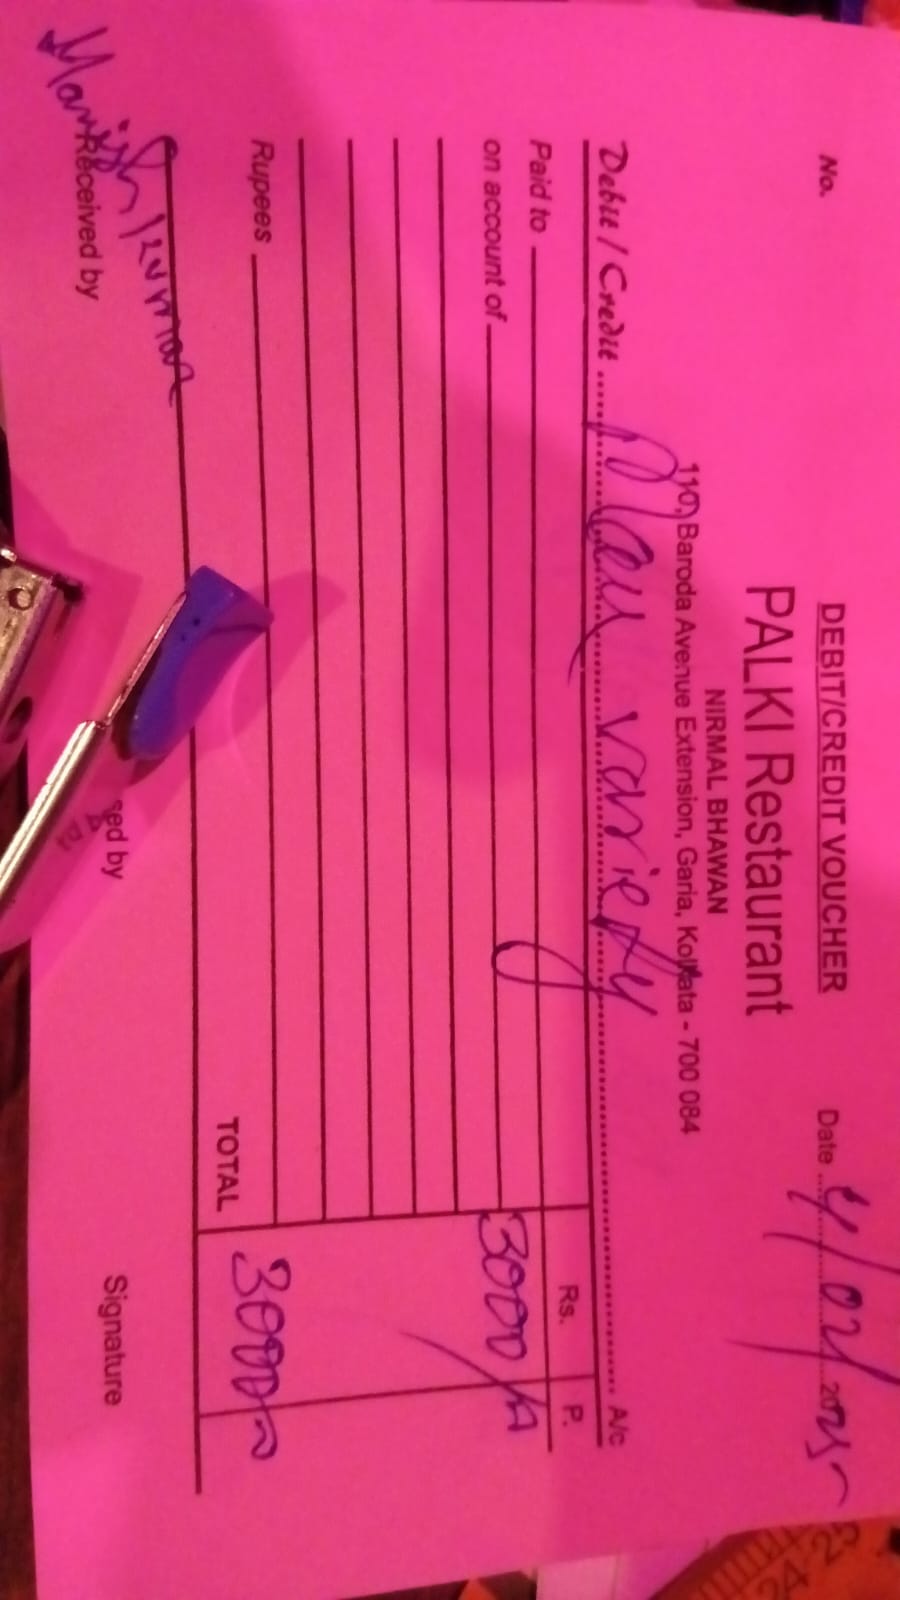 DEBIT/CREDIT VOUCHER
No.
Date 4/02/2025
PALKI Restaurant
NIRMAL BHAWAN
110, Baroda Avenue Extension, Garia, Kolkata - 700 084
Debit / Credit Maa variety A/c
Rs. P.
Paid to
on account of 3000/-
Rupees
TOTAL 3000/-
Manish Kumar
Received by
sed by
Signature
23
24